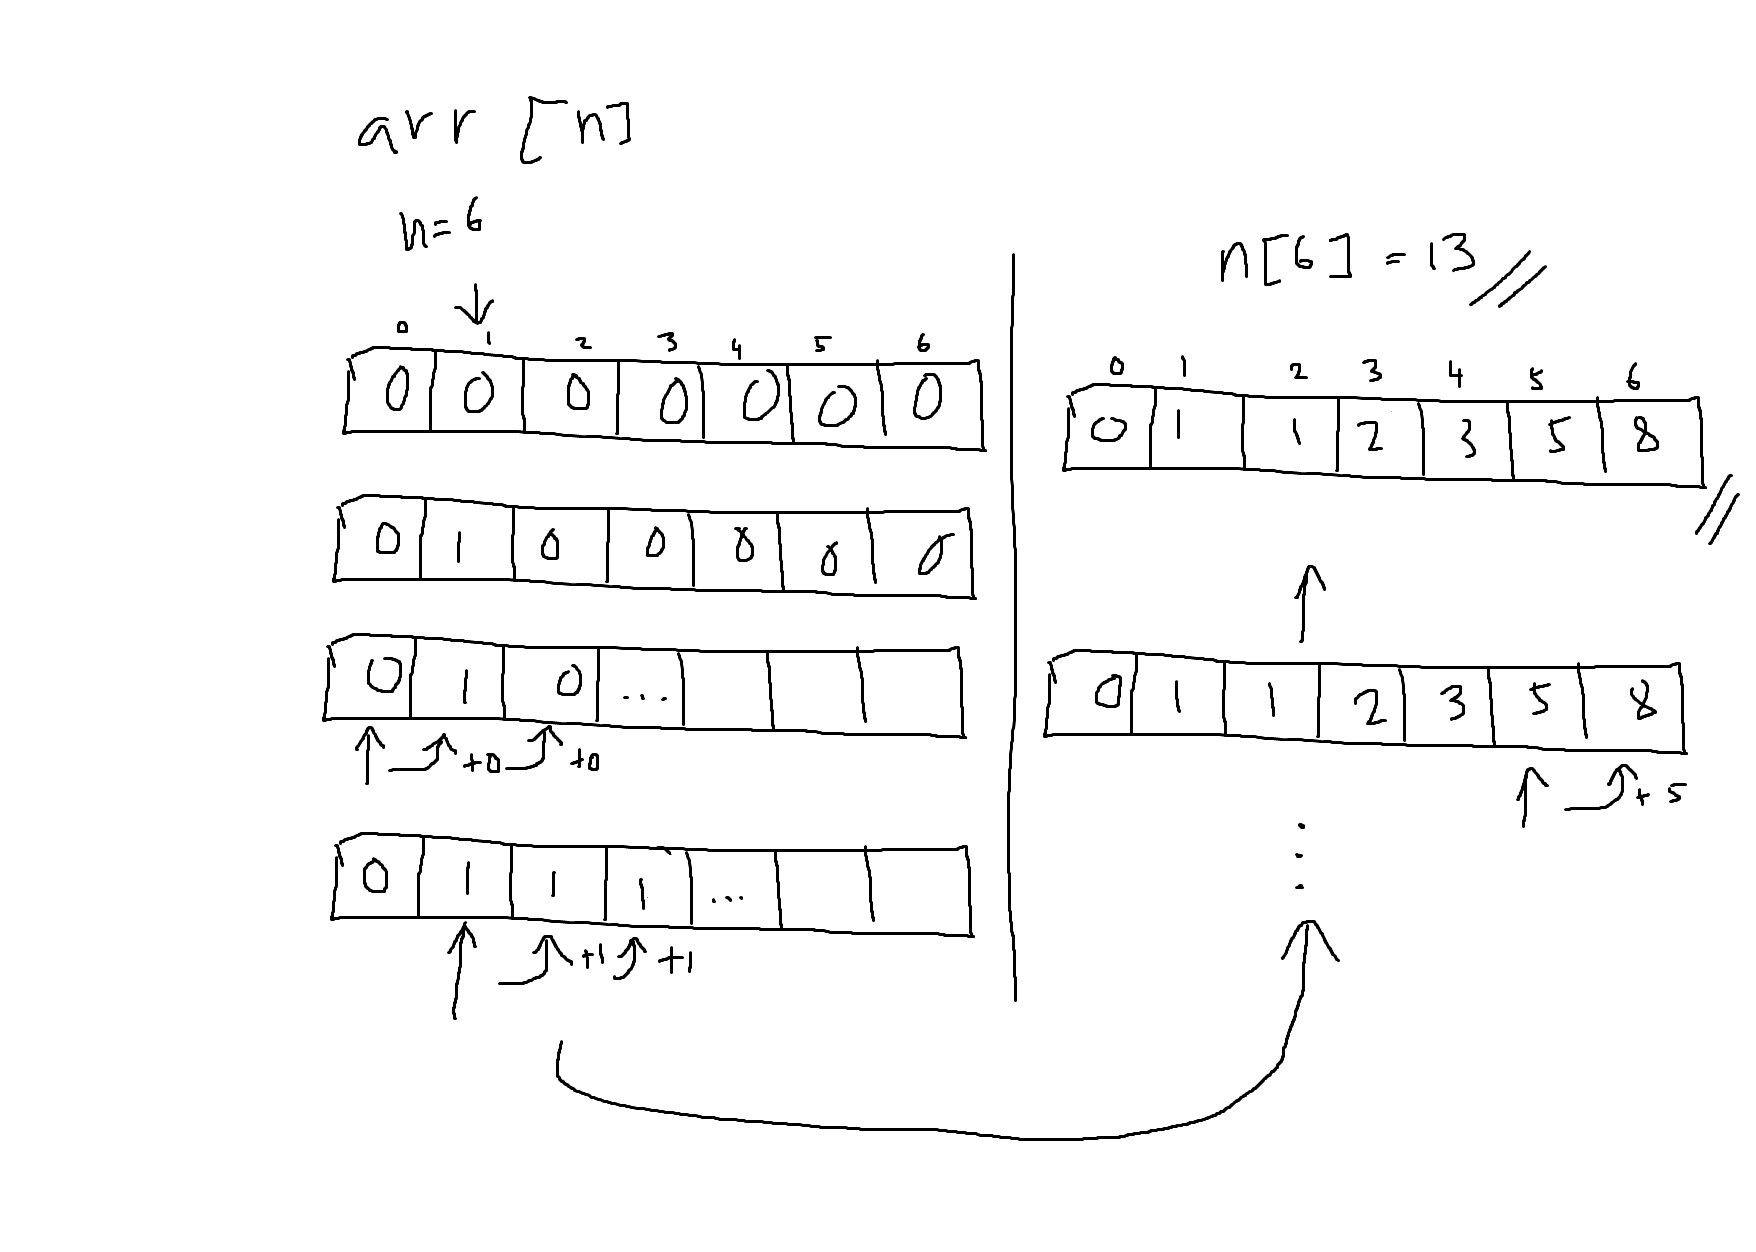 arr [n]
n=6
0 1 2 3 4 5 6
0 0 0 0 0 0 0
0 1 0 0 0 0 0
0 1 0 ...
+0 +0
0 1 1 1 ...
+1 +1
n[6] = 13
0 1 2 3 4 5 6
0 1 1 2 3 5 8
0 1 1 2 3 5 8
+ 5